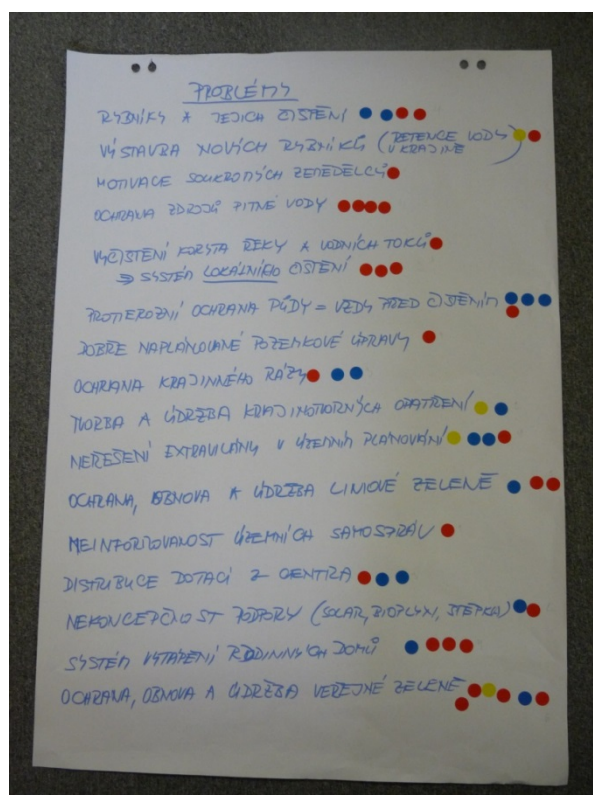 PROBLÉMY
RYBNÍKY A JEJICH ČIŠTĚNÍ
VÝSTAVBA NOVÝCH RYBNÍKŮ (RETENCE VODY
V KRAJINĚ
MOTIVACE SOUKROMÝCH ZEMĚDĚLCŮ
OCHRANA ZDROJŮ PITNÉ VODY
VYČIŠTĚNÍ KORYTA ŘEKY A VODNÍCH TOKŮ
⇒ SYSTÉM LOKÁLNÍHO ČIŠTĚNÍ
PROTIEROZNÍ OCHRANA PŮDY = VŽDY PŘED ČIŠTĚNÍM
DOBŘE NAPLÁNOVANÉ POZEMKOVÉ ÚPRAVY
OCHRANA KRAJINNÉHO RÁZU
TVORBA A ÚDRŽBA KRAJINOTVORNÝCH OPATŘENÍ
NEŘEŠENÍ EXTRAVILÁNU V ÚZEMNÍM PLÁNOVÁNÍ
OCHRANA, OBNOVA A ÚDRŽBA LINIOVÉ ZELENĚ
NEINFORMOVANOST ÚZEMNÍCH SAMOSPRÁV
DISTRIBUCE DOTACÍ Z CENTRA
NEKONCEPČNOST PODPORY (SOLAR, BIOPLYN, ŠTĚPKA)
SYSTÉM VYTÁPĚNÍ RODINNÝCH DOMŮ
OCHRANA, OBNOVA A ÚDRŽBA VEŘEJNÉ ZELENĚ